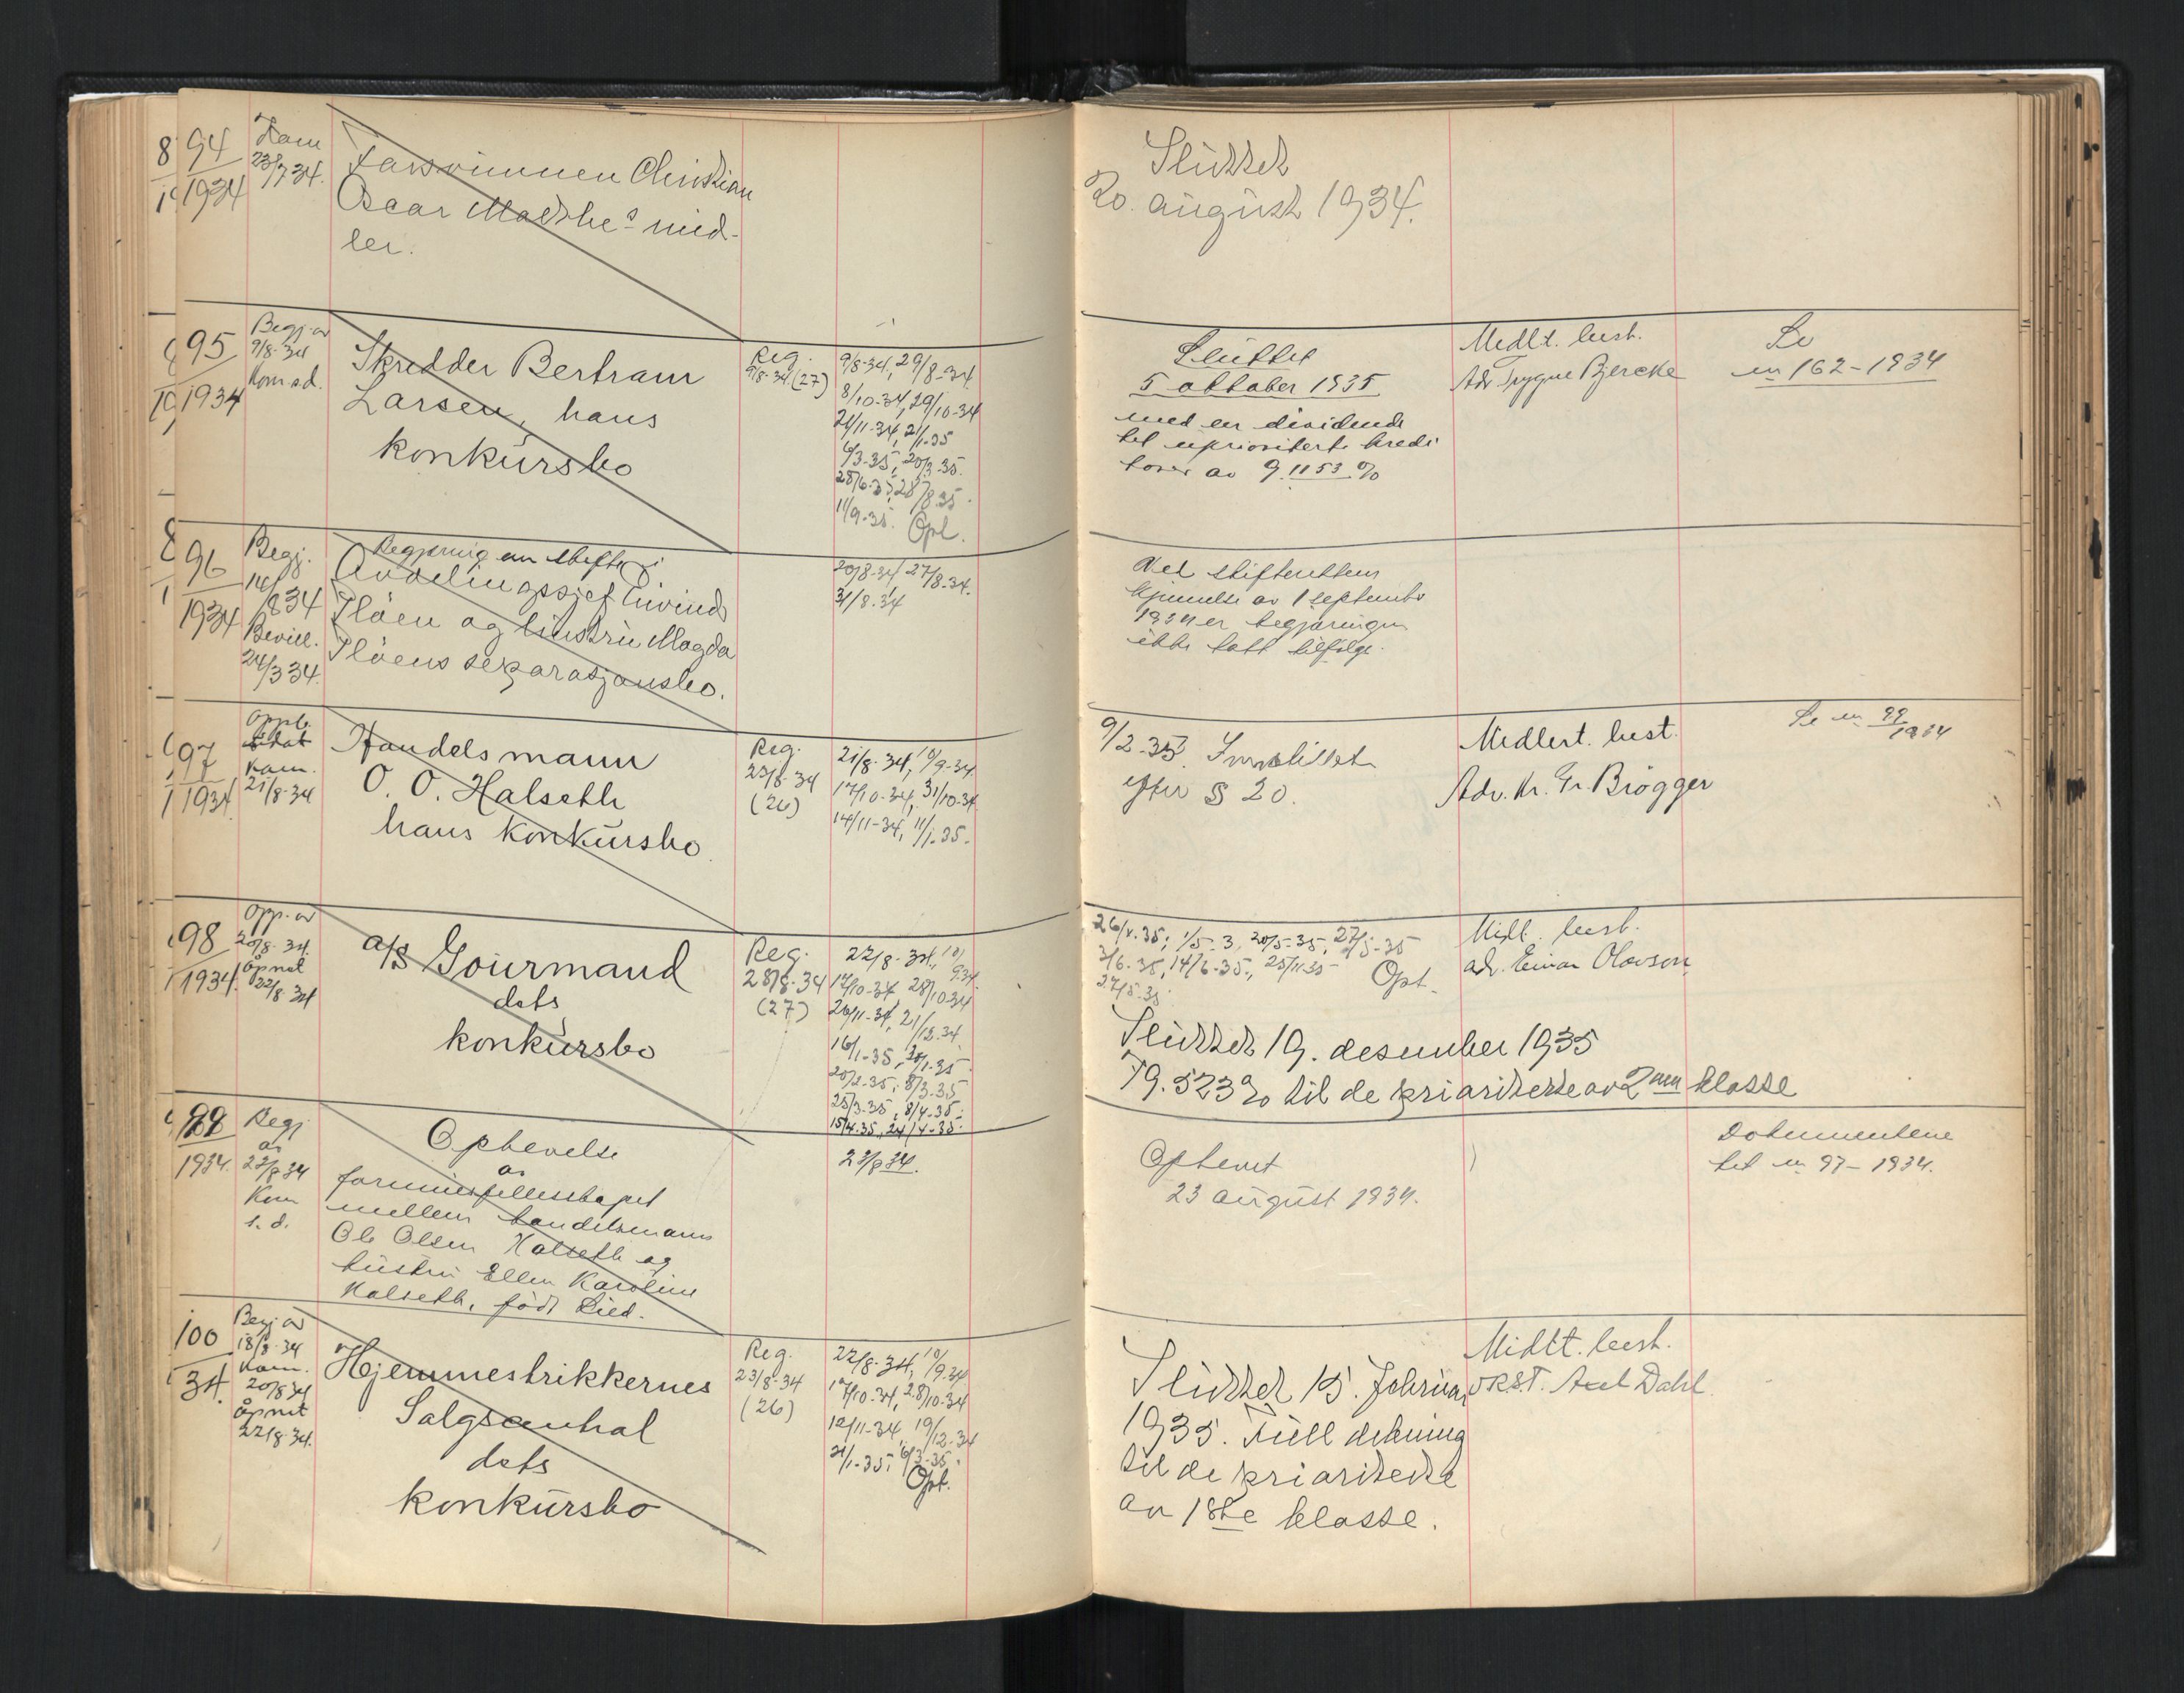 94
1934
Kom
23/7 34.
Forsvunnen Christian
Oscar Mathes mid-
ler.
Sluttet
20. august 1934.
95
1934
Begj. av
9/8-34
Kom s.d.
Skredder Bertram
Larsen, hans
konkursbo
Reg.
9/8-34. (27)
9/8-34, 29/8-34
8/10-34, 29/10-34
21/11-34, 2/1-35
6/3-35, 20/3-35.
28/6-35, 28/8-35.
11/9-35. Opl.
Sluttet
5 oktober 1935
med en dividende
til uprioriterte kredi
torer av 9.1153 %
Medlt. best.
Adv. Trygve Bjercke
Se
nr 162-1934
96
1934
Begj.
14/8 34
Bevill.
24/3 34.
Begjæring om skifte i
Avdelingssjef Eivind
Fløen og hustru Magda
Fløens separasjonsbo.
20/8-34, 27/8-34.
31/8-34
Ved skifterettens
kjennelse av 1 september
1934 er begjæringen
ikke tatt tilfølge.
97
1934.
Oppb.
udat
Kom.
21/8-34
Handelsmann
O. O. Halseth
hans konkursbo.
Reg.
23/8-34
(26)
21/8-34, 10/9-34.
17/10-34, 31/10-34
14/11-34, 11/1-35.
9/2-35. Innstillet
efter § 20.
Medlert. best.
Adv. Kr. Fr. Brøgger
Se nr 99
1934
98
1934.
Opp. av
20/8-34.
Åpnet
22/8-34
A/S Gourmand
dets
konkursbo
Reg.
28/8-34
(27)
22/8-34, 10/9 34.
17/10-34 28/10-34
20/11-34, 21/12-34.
16/1-35, 30/1-35
20/2-35, 8/3-35
25/3-35, 8/4-35.
15/4-35, 24/4-35.
26/4-35, 1/5-3, 20/5-35, 27/5-35
3/6-35, 14/6-35, 25/11-35 Opt.
27/5-35
Sluttet 19. desember 1935
79.523 % til de prioriterte av 2nen klasse
Midl. best.
adv. Einar Olavson
99
1934.
Begj
av
22/8 34
Kom
s. d.
Ophevelse
av
formuesfellesskapet
mellem handelsmann
Ole Olsen Halseth og
hustru Ellen Karoline
Halseth, født Lied.
23/8 34.
Ophevet
23 august 1934.
Dokumentene
til nr 97-1934.
100
34.
Begj. av
18/8-34
Kom.
20/8 34
Åpnet
22/8-34.
Hjemmestrikkernes
Salgscentral
dets
konkursbo
Reg.
23/8-34
(26)
22/8-34, 10/9-34
17/10-34, 28/10-34
12/11-34 19/12-34
21/1-35, 6/3-35.
Opt.
Sluttet 15. februar
1935. Full dekning
til de prioriterte
av 1ste klasse.
Midlt. best.
O.R.S.T. Axel Dahl.